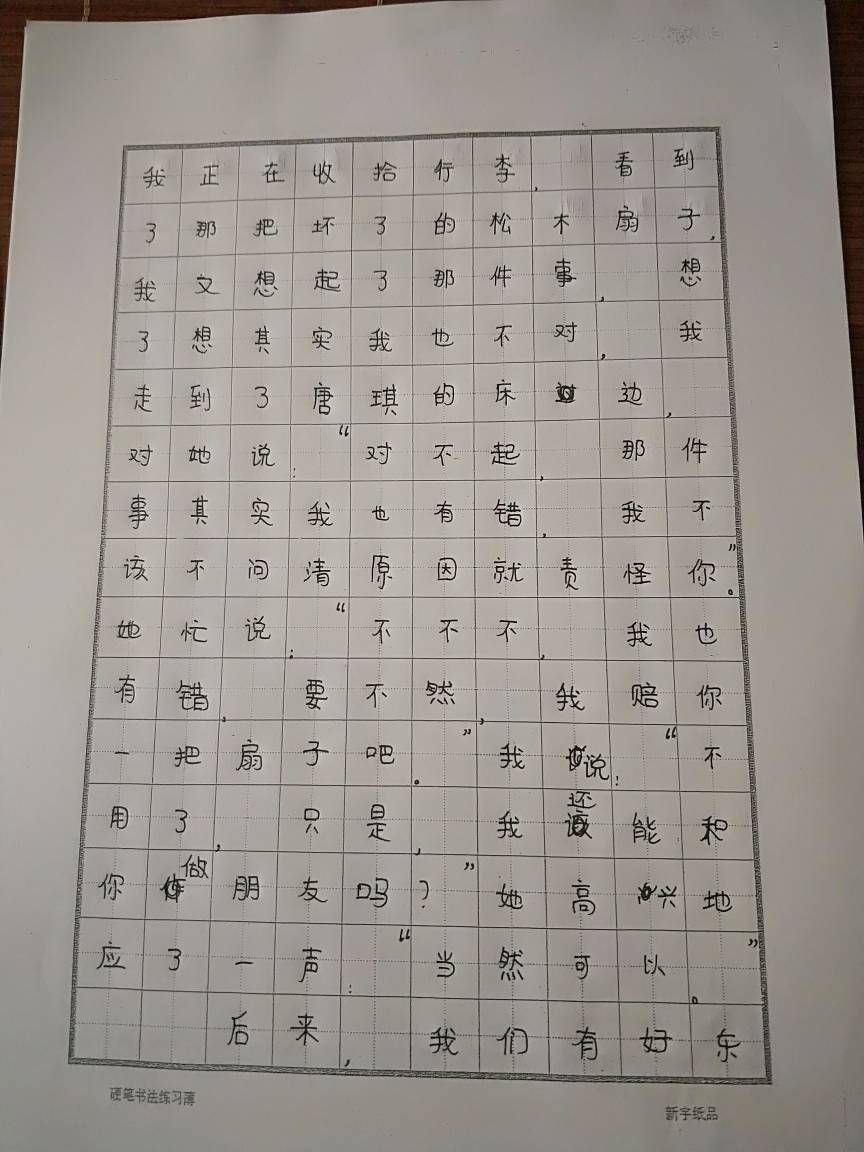 我正在收拾行李，看到
了那把坏了的松木扇子，
我文想起了那件事，想
了想其实我也不对，我
走到了唐琪的床边，
对她说：“对不起，那件
事其实我也有错，我不
该不问清原因就责怪你。”
她忙说：“不不不，我也
有错，要不然，我赔你
一把扇子吧。”我说：“不
用了，只是，我还能和
你做朋友吗？”她高兴地
应了一声：“当然可以。”
后来，我们有好东
硬笔书法练习薄
新宇纸品